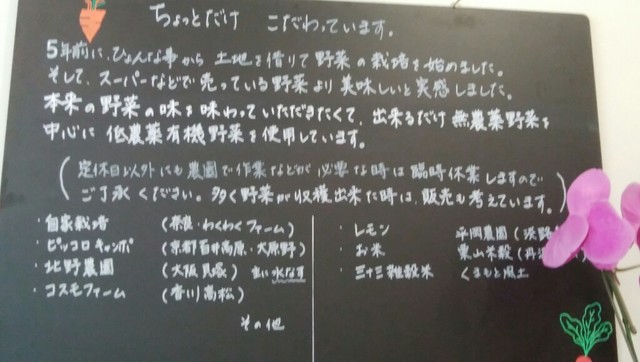 ちょっとだけ こだわっています。
5年前に、ひょんな事から 土地を借りて野菜の栽培を始めました。
そして、スーパーなどで売っている野菜より美味しいと実感しました。
本来の野菜の味を味わっていただきたくて、出来るだけ無農薬野菜を
中心に 低農薬有機野菜を使用しています。
(定休日以外にも農園で作業などが必要な時は臨時休業しますので
ご了承ください。多く野菜が収穫出来た時は、販売も考えています。)
・自家栽培 (奈良・わくわくファーム)
・ピッコロキャンポ (京都百井高原・大原野)
・北野農園 (大阪貝塚) 水なす
・コスモファーム (香川高松)
その他
・レモン 平岡農園 (淡
・お米 東山米穀 (丹
・三十三雑穀米 くまもと風土